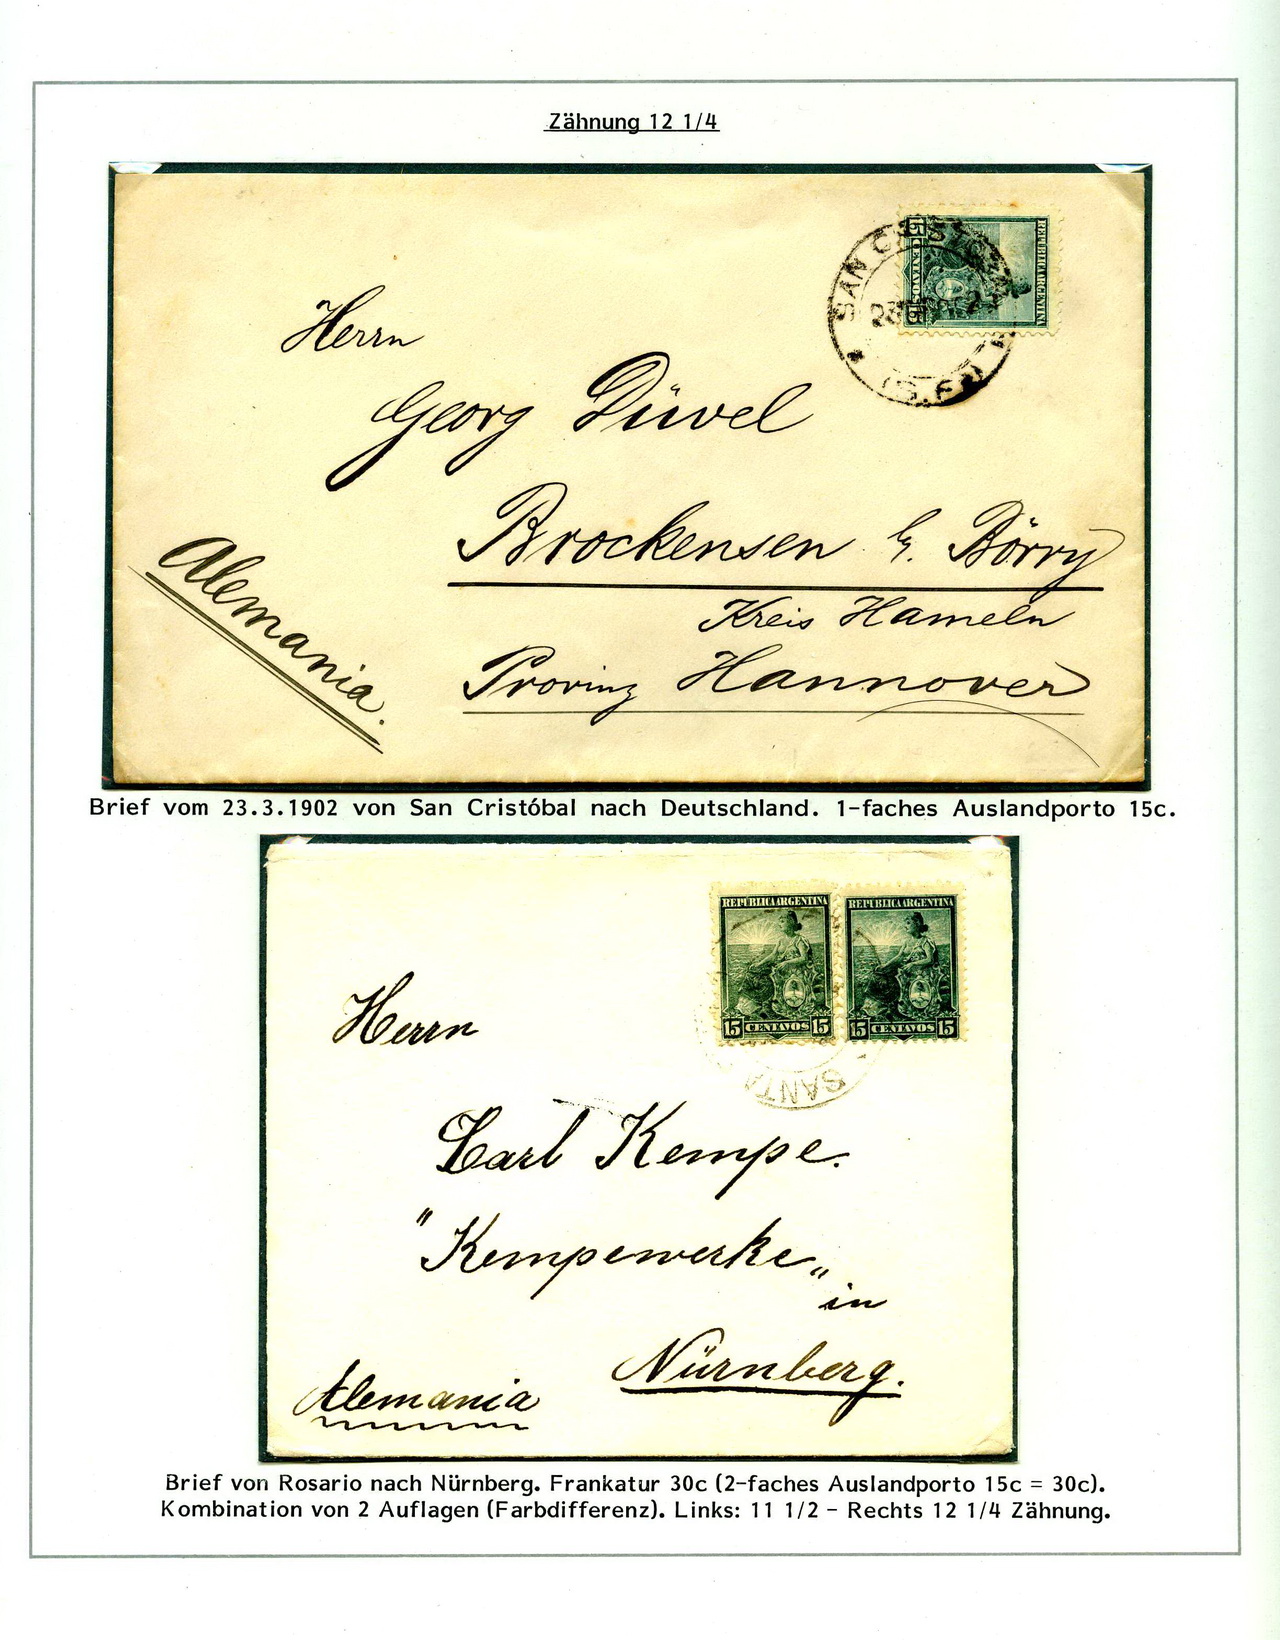 Zähnung 12 1/4
SAN CRIST
(S.FÉ)
15 CENTAVOS 15
REPUBLICA ARGENTINA
Herrn
Georg Düvel
Brockensen b. Börry
Kreis Hameln
Provinz Hannover
Alemania.
Brief vom 23.3.1902 von San Cristóbal nach Deutschland. 1-faches Auslandporto 15c.
REPUBLICA ARGENTINA REPUBLICA ARGENTINA
15 CENTAVOS 15 15 CENTAVOS 15
SANTA
Herrn
Carl Kempe.
"Kempewerke„
in
Nürnberg.
Alemania
Brief von Rosario nach Nürnberg. Frankatur 30c (2-faches Auslandporto 15c = 30c).
Kombination von 2 Auflagen (Farbdifferenz). Links: 11 1/2 - Rechts 12 1/4 Zähnung.